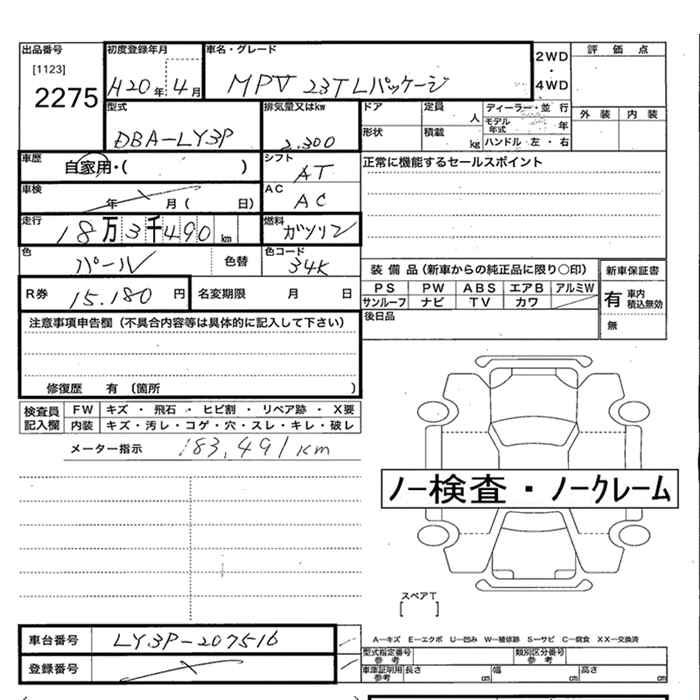 出品番号 [1123] 2275
初度登録年月 H20年 4月
車名・グレード MPV 23T Lパッケージ
2WD・4WD
評価点
外装 内装
型式 DBA-LY3P
排気量又はkw 2.300
ドア
形状
定員 人
積載 kg
ディーラー・並行
モデル年式 年
ハンドル 左・右
車歴 自家用・( )
シフト AT
正常に機能するセールスポイント
車検 年 月( 日)
AC AC
走行 18万3千490km
燃料 ガソリン
色 パール 色替
色コード 34K
R券 15.180円 名変期限 月 日
装備品(新車からの純正品に限り○印)
PS PW ABS エアB アルミW
サンルーフ ナビ TV カワ
新車保証書
有 車内積込無効
無
後日品
注意事項申告欄(不具合内容等は具体的に記入して下さい)
修復歴 有 (箇所 )
検査員記入欄
FW キズ・飛石・ヒビ割・リペア跡・X要
内装 キズ・汚レ・コゲ・穴・スレ・キレ・破レ
メーター指示 183,491km
ノー検査・ノークレーム
スペアT
[ ]
車台番号 LY3P-207516
登録番号
A―キズ E―エクボ U―凹み W―補修跡 S―サビ C―腐食 XX―交換済
型式指定番号 参考
類別区分番号 参考
車庫証明用 参考 長さ cm 幅 cm 高さ cm